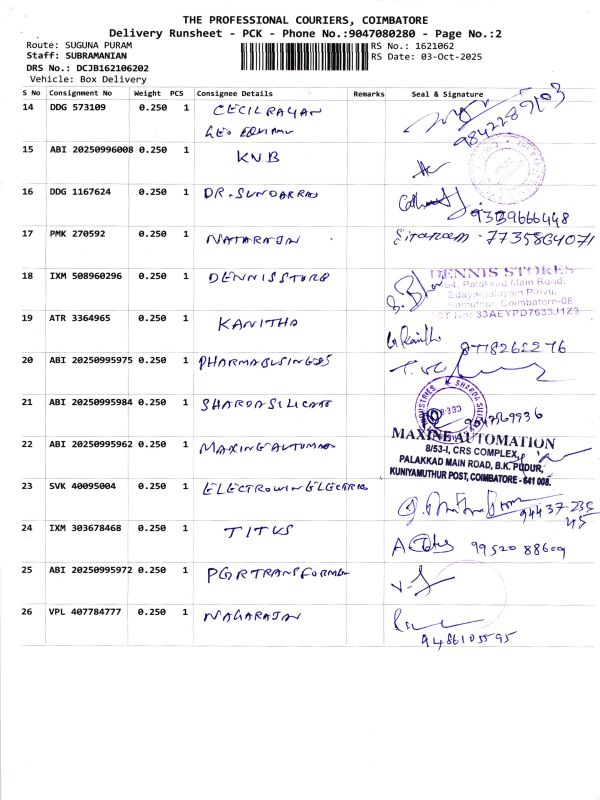 THE PROFESSIONAL COURIERS, COIMBATORE
Delivery Runsheet - PCK - Phone No.:9047080280 - Page No.:2
Route: SUGUNA PURAM
RS No.: 1621062
Staff: SUBRAMANIAN
RS Date: 03-Oct-2025
DRS No.: DCJB162106202
Vehicle: Box Delivery
S No Consignment No Weight PCS Consignee Details Remarks Seal & Signature
14 DDG 573109 0.250 1 CECIL RAYAN
9842289103
15 ABI 20250996008 0.250 1 KNB
16 DDG 1167624 0.250 1 DR. SUNDARRAJ
9339666448
17 PMK 270592 0.250 1 NATARAJAN 7735864071
18 IXM 508960296 0.250 1 DENNIS STORE
DENNIS STORES
54, Palakkad Main Road,
Edayarpalayam Pirivu,
Kuniamuthur, Coimbatore-08
GST No: 33AEYPD7633J1Z3
19 ATR 3364965 0.250 1 KANITHA
8778262276
20 ABI 20250995975 0.250 1 PHARMABUSINGSS
21 ABI 20250995984 0.250 1 SHARDA SILICATE
22 ABI 20250995962 0.250 1 MAXINE AUTOMAO
MAXINE AUTOMATION
8/53-I, CRS COMPLEX,
PALAKKAD MAIN ROAD, B.K. PUDUR,
KUNIYAMUTHUR POST, COIMBATORE - 641 008.
23 SVK 40095004 0.250 1 ELECTROWIN ELECTRIC
94437 235
45
24 IXM 303678468 0.250 1 TITUS
99520 88609
25 ABI 20250995972 0.250 1 PGR TRANSFORMER
26 VPL 407784777 0.250 1 NAGARAJAN
9486105595